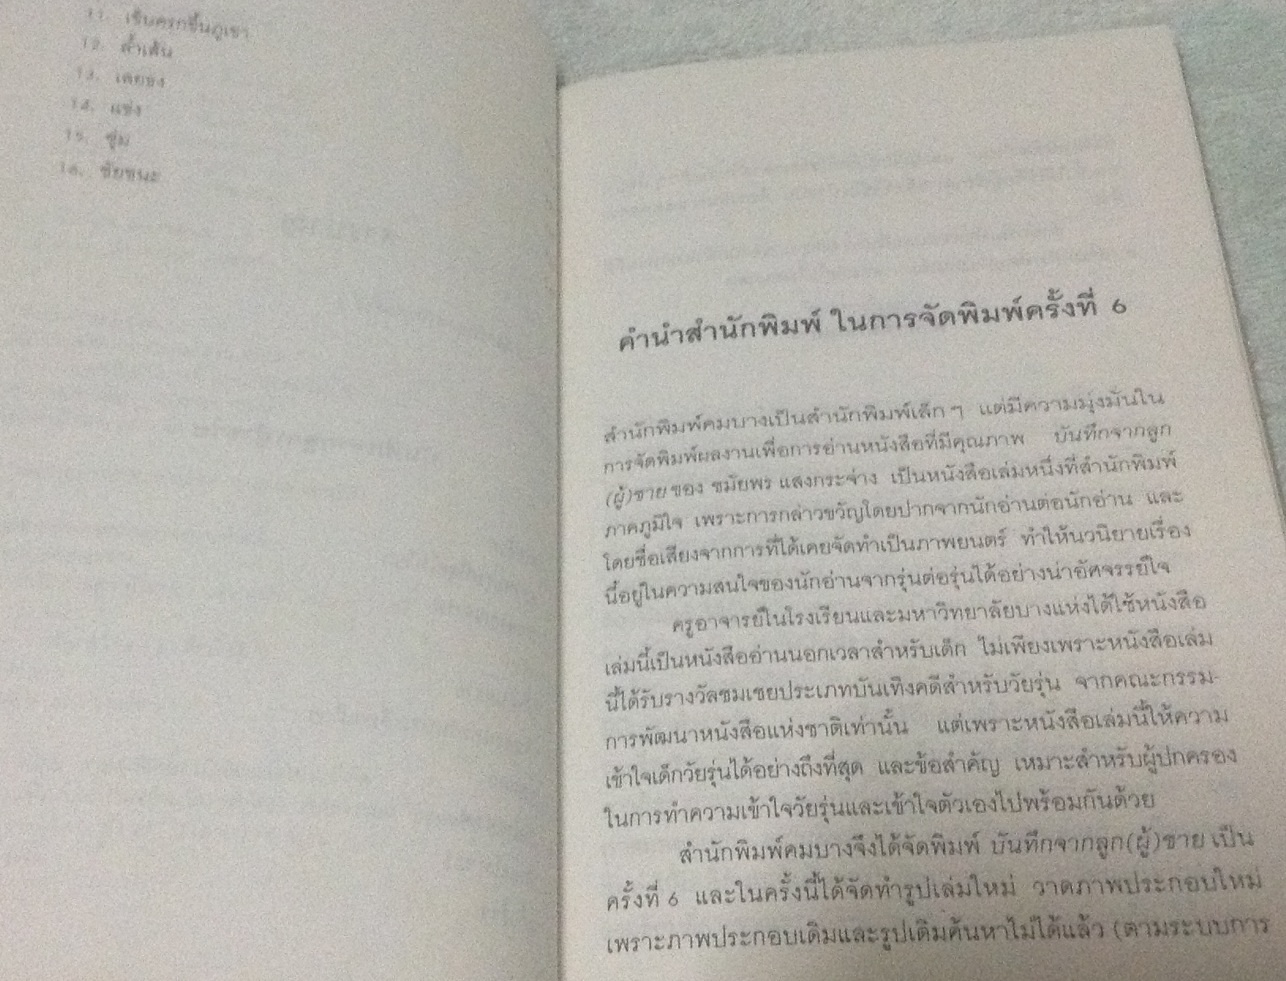 11. เข็นครกขึ้นภูเขา
12. ล้ำเส้น
13.
14. แข่ง
15. ซุ่ม
16. ชัยชนะ
คำนำสำนักพิมพ์ ในการจัดพิมพ์ครั้งที่ 6
สำนักพิมพ์คมบางเป็นสำนักพิมพ์เล็กๆ แต่มีความมุ่งมั่นใน
การจัดพิมพ์ผลงานเพื่อการอ่านหนังสือที่มีคุณภาพ บันทึกจากลูก
(ผู้)ชาย ของ ชมัยพร แสงกระจ่าง เป็นหนังสือเล่มหนึ่งที่สำนักพิมพ์
ภาคภูมิใจ เพราะการกล่าวขวัญโดยปากจากนักอ่านต่อนักอ่าน และ
โดยชื่อเสียงจากการที่ได้เคยจัดทำเป็นภาพยนตร์ ทำให้นวนิยายเรื่อง
นี้อยู่ในความสนใจของนักอ่านจากรุ่นต่อรุ่นได้อย่างน่าอัศจรรย์ใจ
ครูอาจารย์ในโรงเรียนและมหาวิทยาลัยบางแห่งได้ใช้หนังสือ
เล่มนี้เป็นหนังสืออ่านนอกเวลาสำหรับเด็ก ไม่เพียงเพราะหนังสือเล่ม
นี้ได้รับรางวัลชมเชยประเภทบันเทิงคดีสำหรับวัยรุ่น จากคณะกรรม-
การพัฒนาหนังสือแห่งชาติเท่านั้น แต่เพราะหนังสือเล่มนี้ให้ความ
เข้าใจเด็กวัยรุ่นได้อย่างถึงที่สุด และข้อสำคัญ เหมาะสำหรับผู้ปกครอง
ในการทำความเข้าใจวัยรุ่นและเข้าใจตัวเองไปพร้อมกันด้วย
สำนักพิมพ์คมบางจึงได้จัดพิมพ์ บันทึกจากลูก(ผู้)ชาย เป็น
ครั้งที่ 6 และในครั้งนี้ได้จัดทำรูปเล่มใหม่ วาดภาพประกอบใหม่
เพราะภาพประกอบเดิมและรูปเดิมค้นหาไม่ได้แล้ว (ตามระบบการ